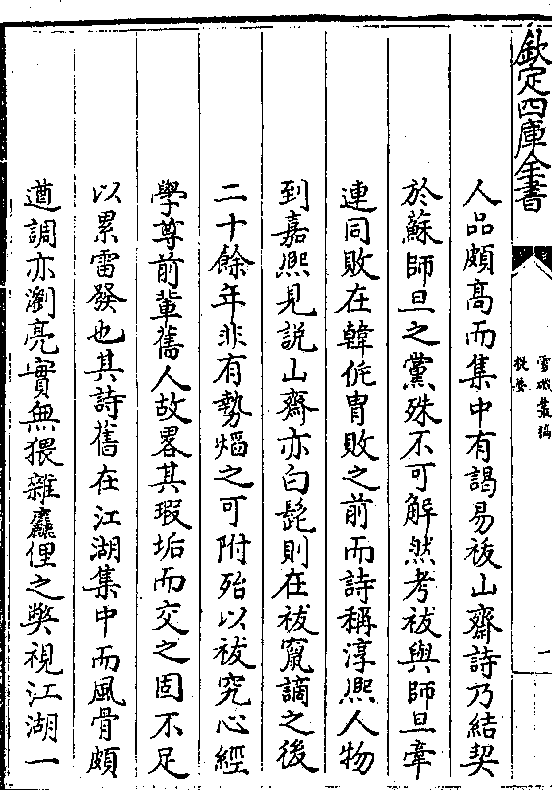 欽定四庫全書
雪磯叢稿
提要
一
人品頗高而集中有謁易祓山齋詩乃結契
於蘇師旦之黨殊不可解然考祓與師旦牽
連同敗在韓侂胄敗之前而詩稱淳熙人物
到嘉熙見說山齋亦白髭則在祓竄謫之後
二十餘年非有勢熖之可附殆以祓究心經
學尊前輩舊人故畧其瑕垢而交之固不足
以累雷發也其詩舊在江湖集中而風骨頗
遒調亦瀏亮實無猥雜麤俚之弊視江湖一